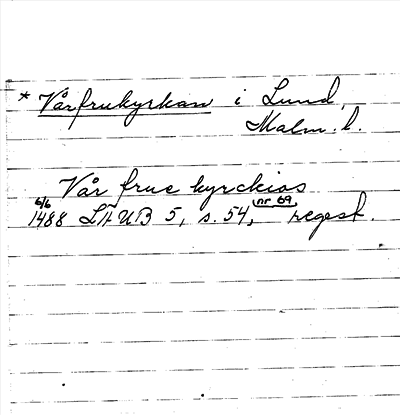 * Vårfrukyrkan i Lund,
Malm. l.
Vår frue kyrckios
6/6 1488 LÄUB 5, s. 54, nr 69, regest.